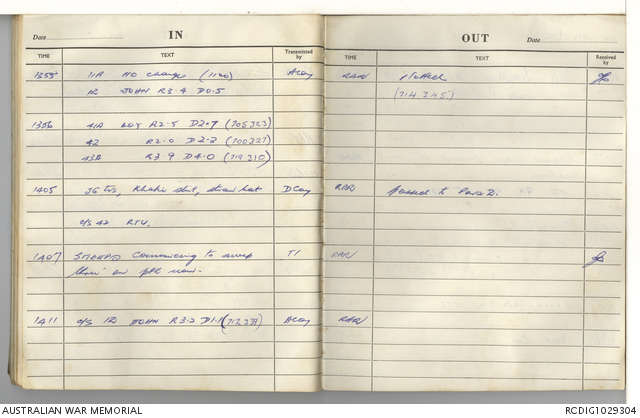 Date IN
TIME TEXT Transmitted by
1355 11A NO change (1120) A Coy
12 JOHN R3.4 D0.5
1356 41A ROY R2.5 D2.9 (705323)
42 R2.0 D2.2 (700327)
43A R3.9 D4.0 (719310)
1405 Khaki shirt, straw hat D Coy
O/S 42 RTU.
1407 commencing to sweep T1
now.
1411 O/S 12 JOHN R3.2 D1.1 A Coy
OUT Date
TIME TEXT Received by
RAR plotted
(714345)
RAR passed to
RAR
RAR
AUSTRALIAN WAR MEMORIAL RCDIG1029304